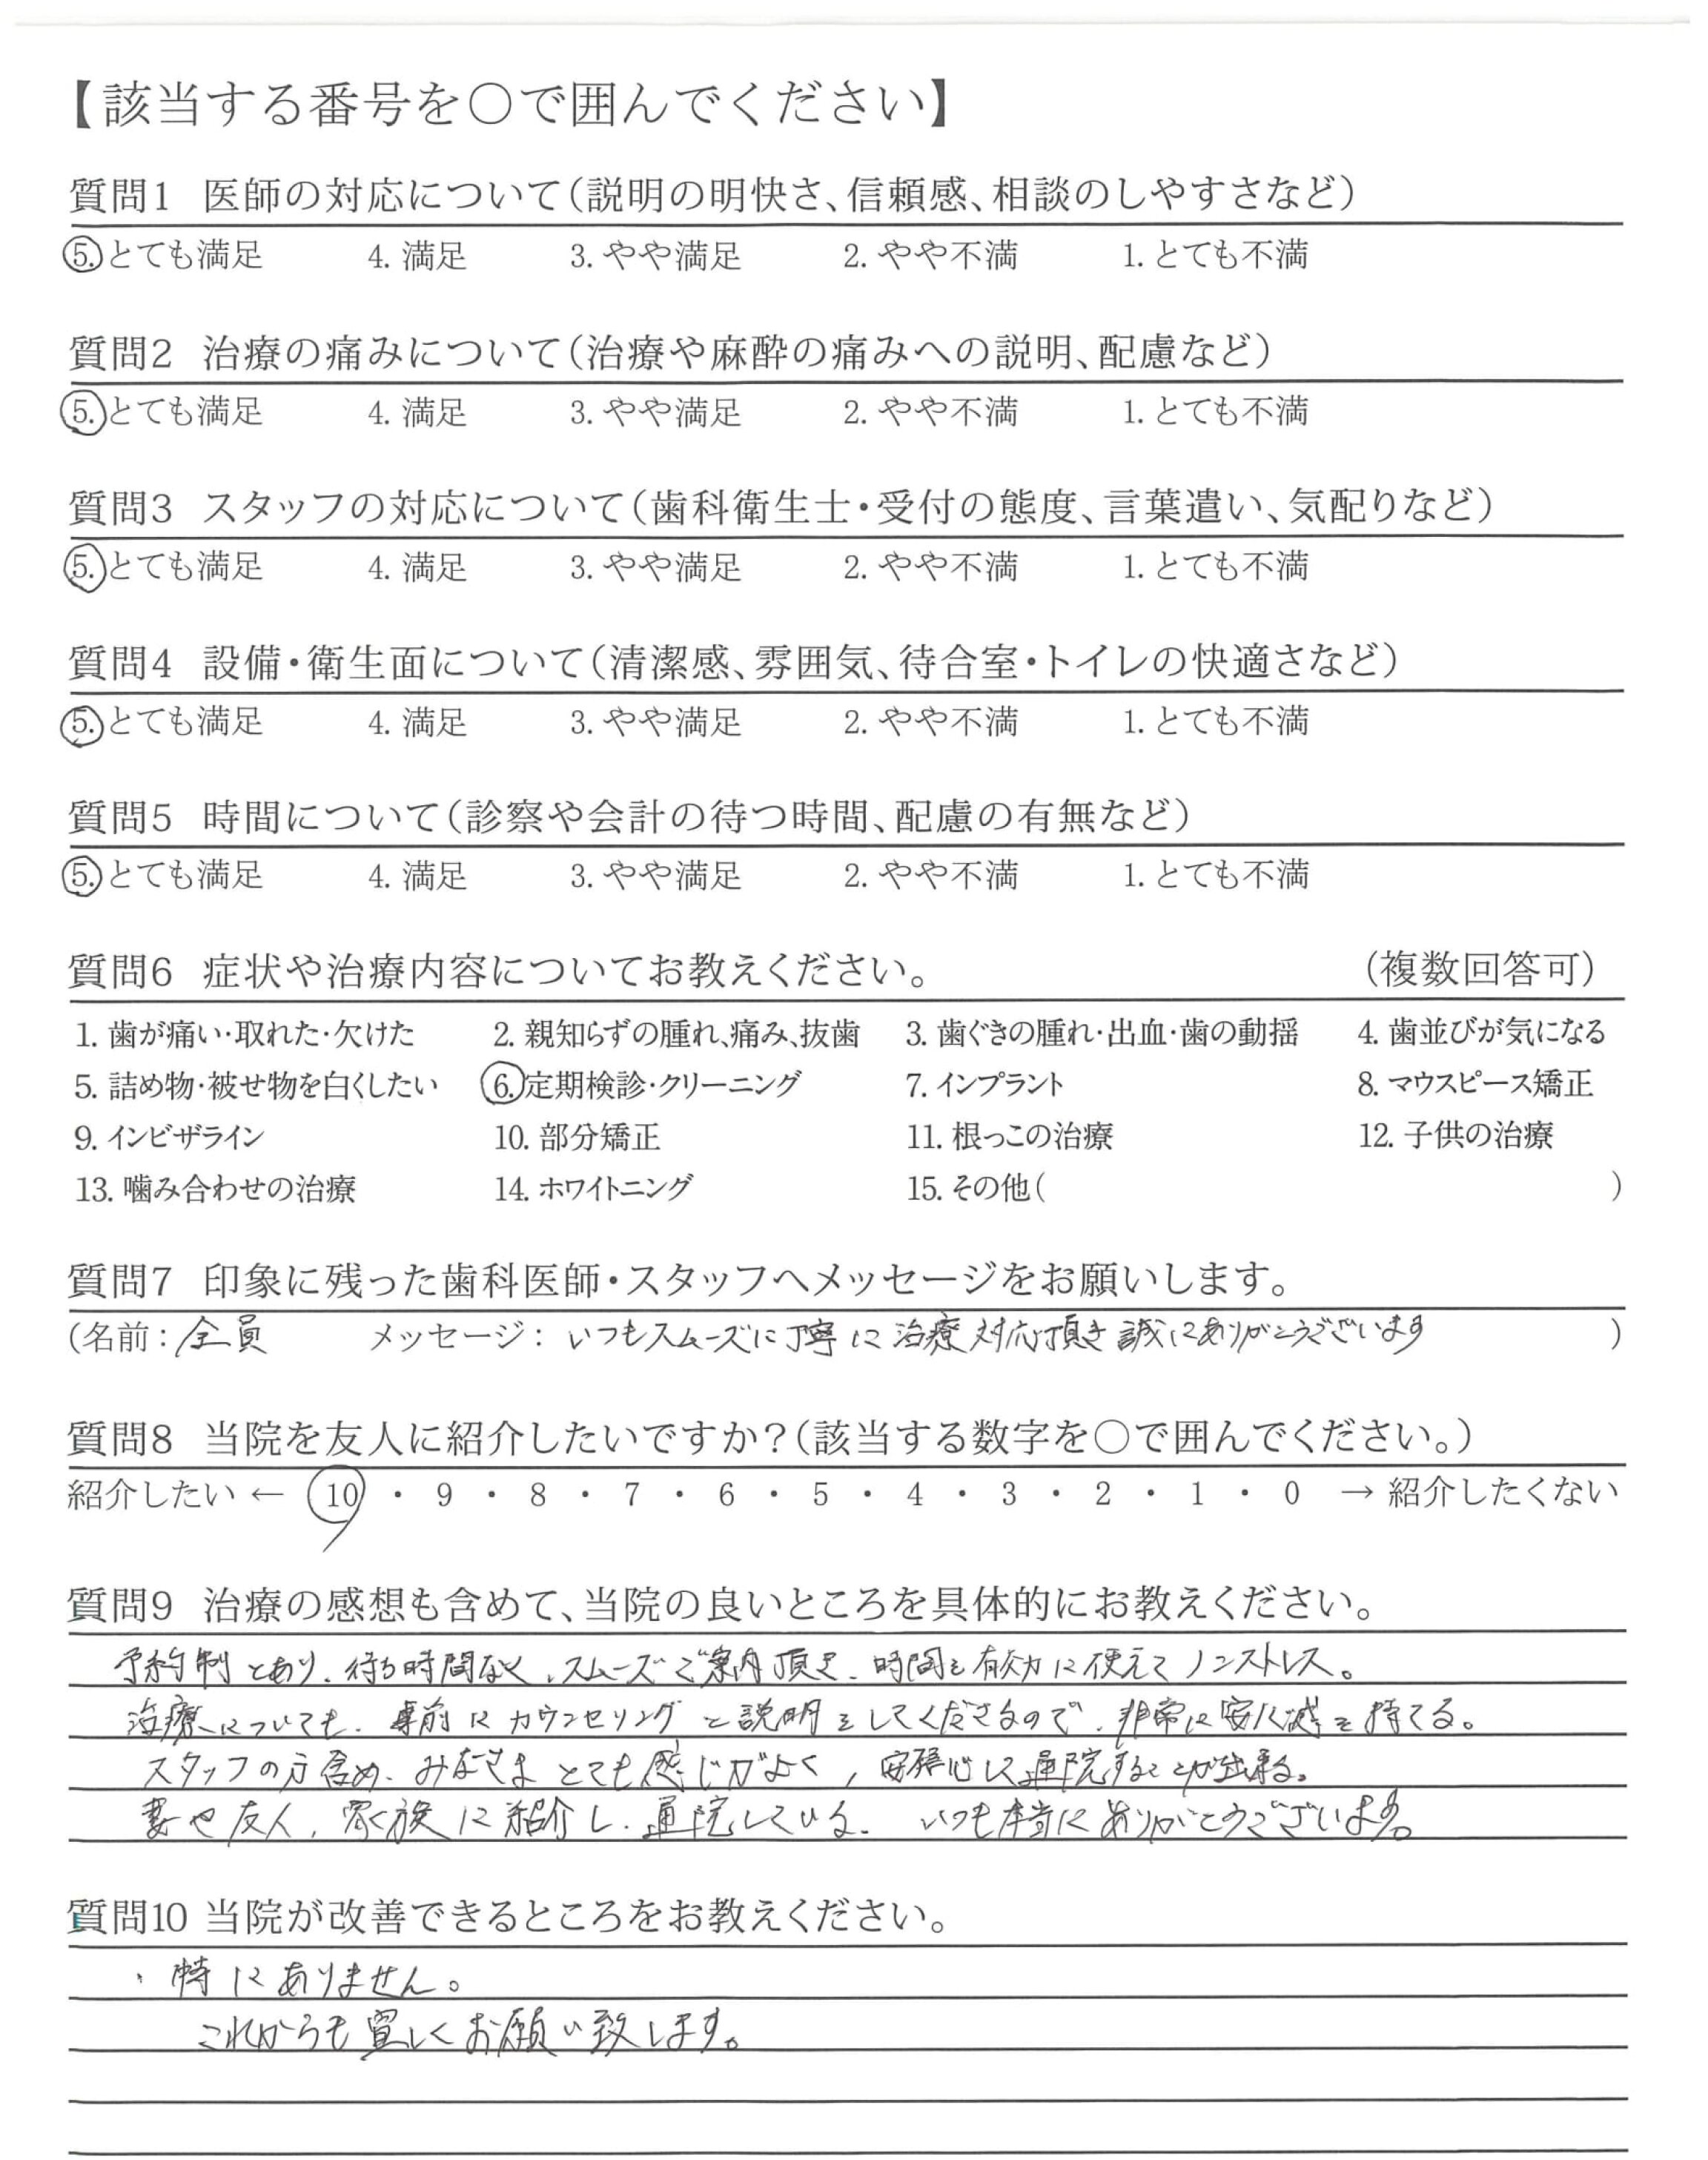 【該当する番号を○で囲んでください】
質問1 医師の対応について（説明の明快さ、信頼感、相談のしやすさなど）
5. とても満足 4. 満足 3. やや満足 2. やや不満 1. とても不満
質問2 治療の痛みについて（治療や麻酔の痛みへの説明、配慮など）
5. とても満足 4. 満足 3. やや満足 2. やや不満 1. とても不満
質問3 スタッフの対応について（歯科衛生士・受付の態度、言葉遣い、気配りなど）
5. とても満足 4. 満足 3. やや満足 2. やや不満 1. とても不満
質問4 設備・衛生面について（清潔感、雰囲気、待合室・トイレの快適さなど）
5. とても満足 4. 満足 3. やや満足 2. やや不満 1. とても不満
質問5 時間について（診察や会計の待つ時間、配慮の有無など）
5. とても満足 4. 満足 3. やや満足 2. やや不満 1. とても不満
質問6 症状や治療内容についてお教えください。 （複数回答可）
1. 歯が痛い・取れた・欠けた 2. 親知らずの腫れ、痛み、抜歯 3. 歯ぐきの腫れ・出血・歯の動揺 4. 歯並びが気になる
5. 詰め物・被せ物を白くしたい 6. 定期検診・クリーニング 7. インプラント 8. マウスピース矯正
9. インビザライン 10. 部分矯正 11. 根っこの治療 12. 子供の治療
13. 噛み合わせの治療 14. ホワイトニング 15. その他（ ）
質問7 印象に残った歯科医師・スタッフへメッセージをお願いします。
（名前：全員 メッセージ：いつもスムーズに丁寧に治療対応頂き誠にありがとうございます ）
質問8 当院を友人に紹介したいですか？（該当する数字を○で囲んでください。）
紹介したい ← 10 ・ 9 ・ 8 ・ 7 ・ 6 ・ 5 ・ 4 ・ 3 ・ 2 ・ 1 ・ 0 → 紹介したくない
質問9 治療の感想も含めて、当院の良いところを具体的にお教えください。
予約制とあり、待ち時間なく、スムーズご案内頂き、時間を有効に使えてノンストレス。
治療についても、事前にカウンセリングと説明をしてくださるので、非常に安心感を持てる。
スタッフの方含め、みなさまとても感じがよく、安心して通院することが出来る。
妻や友人、家族に紹介し、通院している。 いつも本当にありがとうございます。
質問10 当院が改善できるところをお教えください。
・特にありません。
これからも宜しくお願い致します。